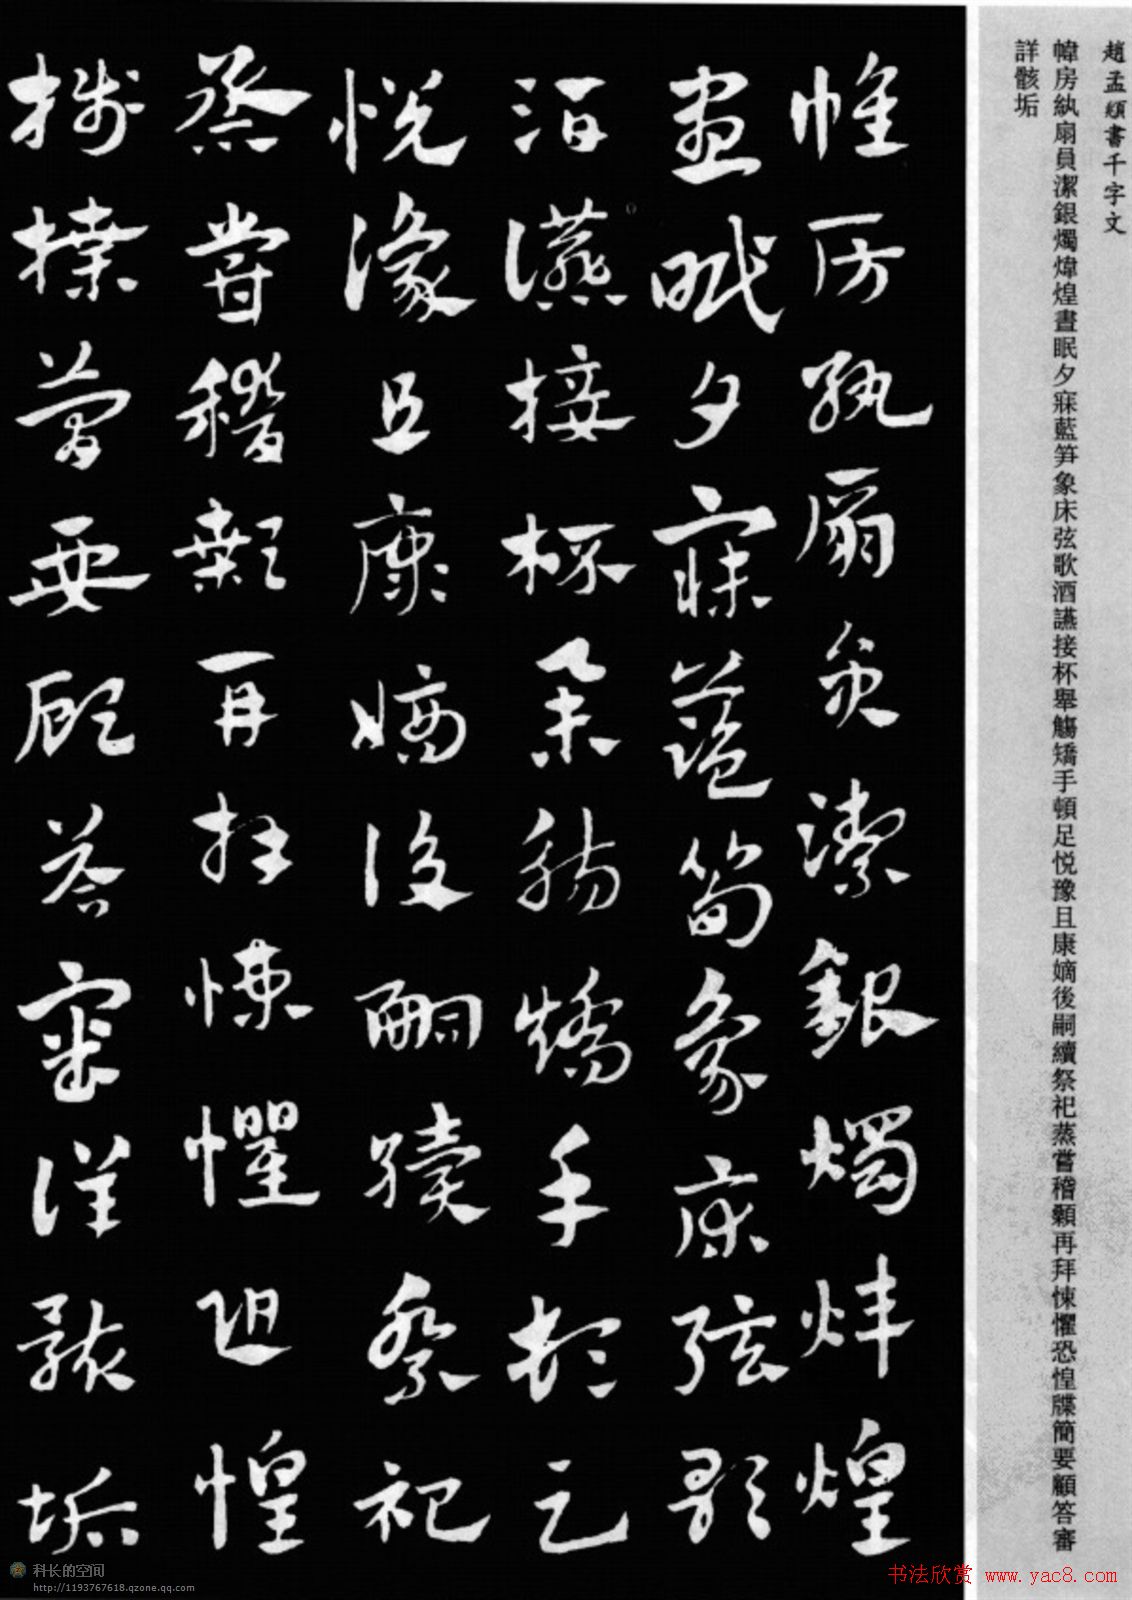 趙孟頫書千字文
幃房紈扇員潔銀燭煒煌晝眠夕寐藍笋象床弦歌酒讌接杯舉觴矯手頓足悦豫且康嫡後嗣續祭祀蒸嘗稽顙再拜悚懼恐惶牒簡要顧答審
詳骸垢
帷房紈扇員潔銀燭煒煌
晝眠夕寐藍筍象床弦歌
酒讌接杯舉觴矯手頓足
悅豫且康嫡後嗣續祭祀
蒸嘗稽顙再拜悚懼恐惶
牋牒簡要顧答審詳骸垢
科长的空间
http://1193767618.qzone.qq.com
书法欣赏 www.yac8.com